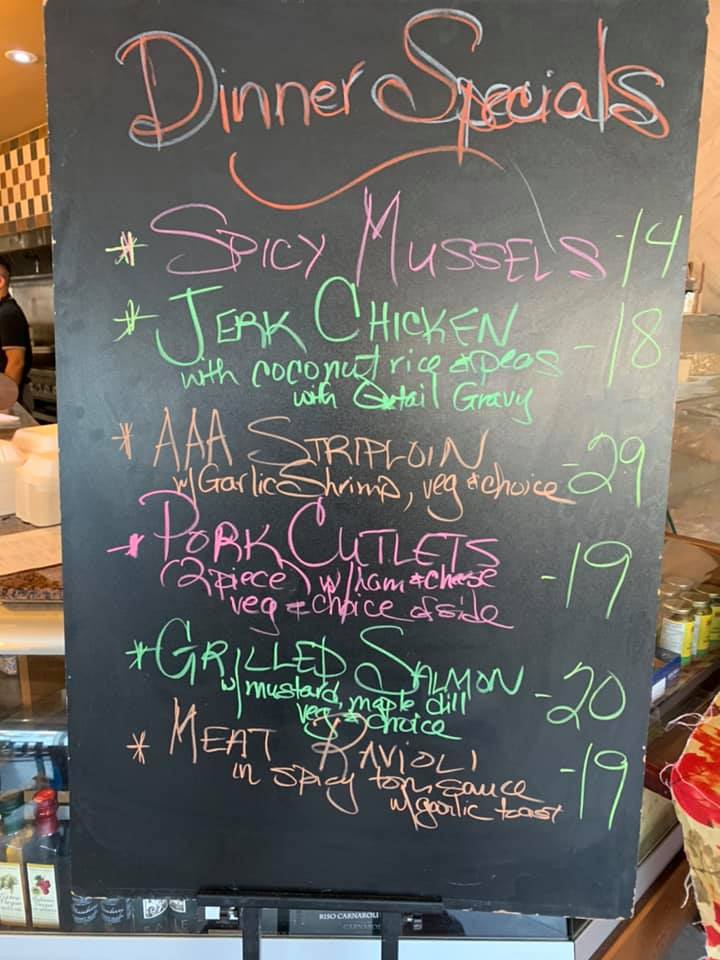 Dinner Specials
* SPICY MUSSELS -14
* JERK CHICKEN -18
with coconut rice & peas
with Oxtail Gravy
* AAA STRIPLOIN -29
w/ Garlic Shrimp, veg & choice
* PORK CUTLETS -19
(2 piece) w/ ham & cheese
veg & choice of side
* GRILLED SALMON -20
w/ mustard, maple dill
veg & choice
* MEAT RAVIOLI -19
in spicy tom sauce
w/ garlic toast
RISO CARNAROLI
CARNAROLI